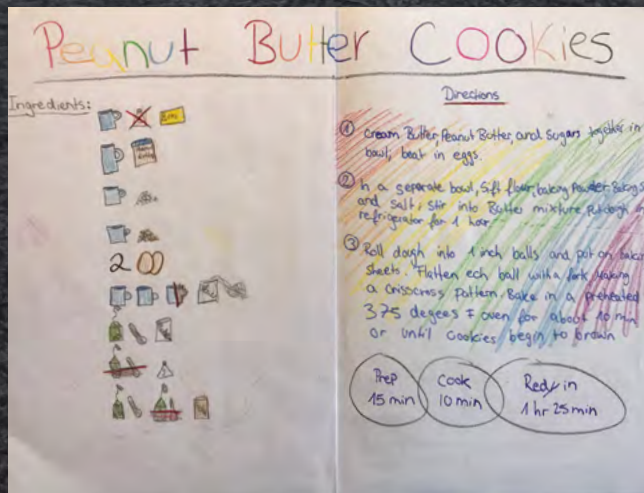 Peanut Butter Cookies
Ingredients:
2
Directions
① Cream Butter, Peanut Butter, and Sugars together in
bowl; beat in eggs.
② In a separate bowl, Sift flour, baking Powder, Baking S
and salt; stir into Butter mixture. Put dough in
refrigerator for 1 hour
③ Roll dough into 1 inch balls and put on baking
sheets. Flatten ech ball with a fork, Making
a crisscross pattern. Bake in a preheated
375 degees F oven for about 10 min
or until cookies begin to brown
Prep
15 min
Cook
10 min
Redy in
1 hr 25 min